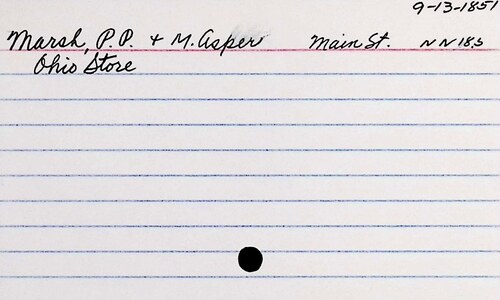 9-13-1851
Marsh, P.P. + M. Asper Main St. N N 18 5
Ohio Store